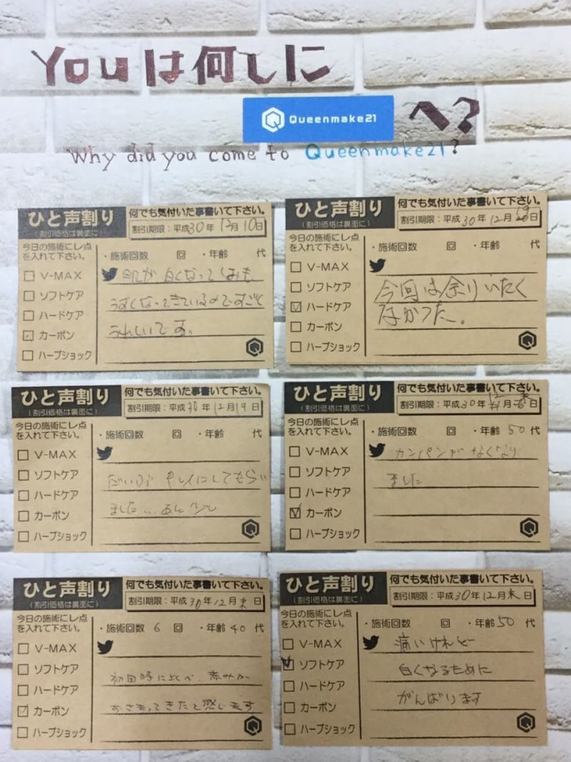 Youは何しに
Queenmake21 へ?
Why did you come to Queenmake21?
ひと声割り
(割引価格は裏面に)
何でも気付いた事書いて下さい。
割引期限:平成30年 月10日
今日の施術にレ点
を入れて下さい。
・施術回数 回 ・年齢 代
V-MAX
ソフトケア
ハードケア
カーボン
ハーブショック
肌が白くなってしみも
うすくなってきているのですごく
うれしいです。
ひと声割り
(割引価格は裏面に)
何でも気付いた事書いて下さい。
割引期限:平成30年12月 日
今日の施術にレ点
を入れて下さい。
・施術回数 回 ・年齢 代
V-MAX
ソフトケア
ハードケア
カーボン
ハーブショック
今回は余りいたく
なかった。
ひと声割り
(割引価格は裏面に)
何でも気付いた事書いて下さい。
割引期限:平成30年12月19日
今日の施術にレ点
を入れて下さい。
・施術回数 回 ・年齢 代
V-MAX
ソフトケア
ハードケア
カーボン
ハーブショック
だいぶ キレイにしてもらい
ました
ひと声割り
(割引価格は裏面に)
何でも気付いた事書いて下さい。
割引期限:平成30年 月 日
今日の施術にレ点
を入れて下さい。
・施術回数 回 ・年齢50代
V-MAX
ソフトケア
ハードケア
カーボン
ハーブショック
カンパンがなくなり
ました
ひと声割り
(割引価格は裏面に)
何でも気付いた事書いて下さい。
割引期限:平成30年12月末日
今日の施術にレ点
を入れて下さい。
・施術回数 6 回 ・年齢40代
V-MAX
ソフトケア
ハードケア
カーボン
ハーブショック
初回時に比べ、赤みが
おさまってきたと感じます
ひと声割り
(割引価格は裏面に)
何でも気付いた事書いて下さい。
割引期限:平成30年12月末日
今日の施術にレ点
を入れて下さい。
・施術回数 回 ・年齢50代
V-MAX
ソフトケア
ハードケア
カーボン
ハーブショック
痛いけれど
白くなるために
がんばります